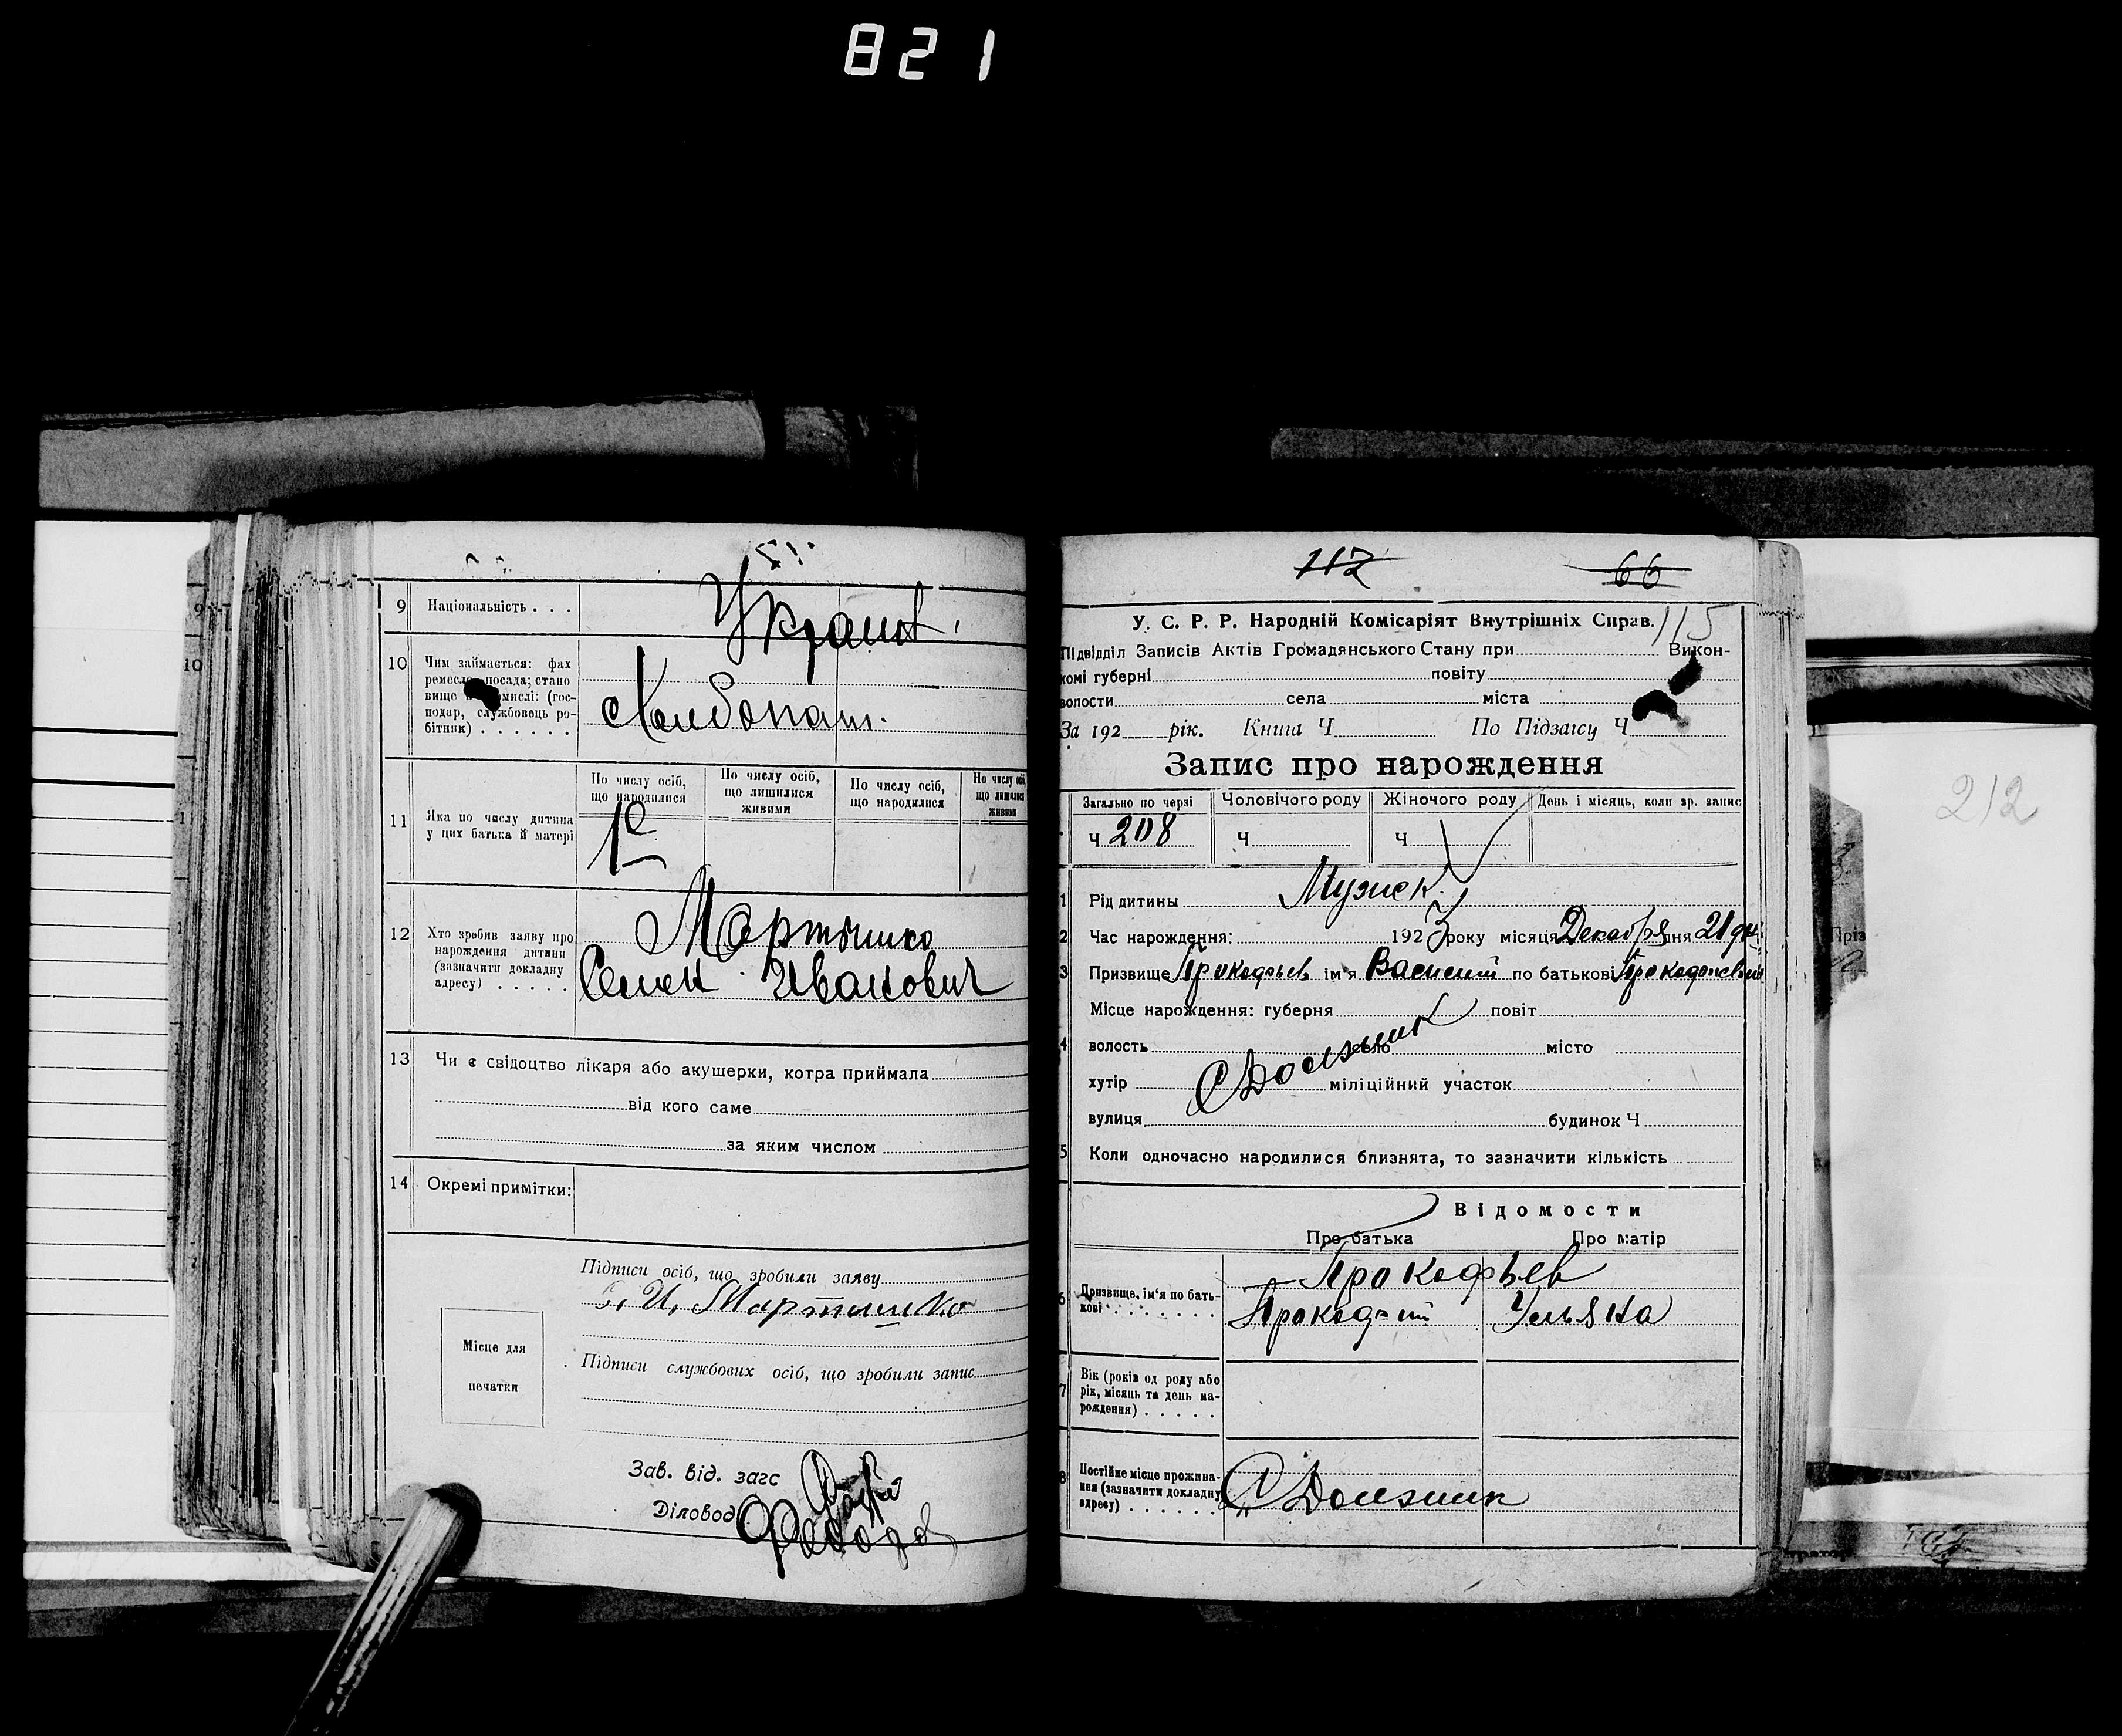 821
9 Національність . . .
Украин.
10 Чим займається: фах
ремесло посада; стано
вище (гос-
подар, службовець ро-
бітник) . . . . . .
Хлибопаш.
11 Яка по числу дитина
у цих батька й матері
По числу осіб,
що народилися
По числу осіб,
що лишилися
живими
По числу осіб,
що народилися
По числу осіб,
що лишилися
живими
12 Хто зробив заяву про
нарождення дитини
(зазначити докладну
адресу) . . . . .
Семен Иванович
13 Чи є свідоцтво лікаря або акушерки, котра приймала
від кого саме
за яким числом
14 Окремі примітки:
Підписи осіб, що зробили заяву
Місце для
печатки
Підписи службових осіб, що зробили запис
Зав. від. загс
Діловод
112 66
115
У. С. Р. Р. Народній Комісаріят Внутрішніх Справ.
Підвідділ Записів Актів Громадянського Стану при Викон-
комі губерні повіту
волости села міста
За 192 рік. Книга Ч По Підзагсу Ч
Запис про нарождення
Загально по черзі Чоловічого роду Жіночого роду День і місяць, коли зр. запис
Ч 208 Ч Ч
1 Рід дитины Мужск.
2 Час нарождення: 1923 року місяця Декабря дня 21 дня
3 Призвище Прокофьев ім'я Василий по батькові Прокофиевич
Місце нарождення: губерня повіт
4 волость село місто
С Долзник
хутір міліційний участок
вулиця будинок Ч
5 Коли одночасно народилися близнята, то зазначити кількість
Відомости
Про батька Про матір
6 Призвище, ім'я по бать-
кові . . . . . . .
Прокофьев
Прокофий Ульяна
7 Вік (років од роду або
рік, місяць та день на-
рождення) . . . . .
8 Постійне місце прожива-
ння (зазначити докладну
адресу) . . . . .
С Долзник
212